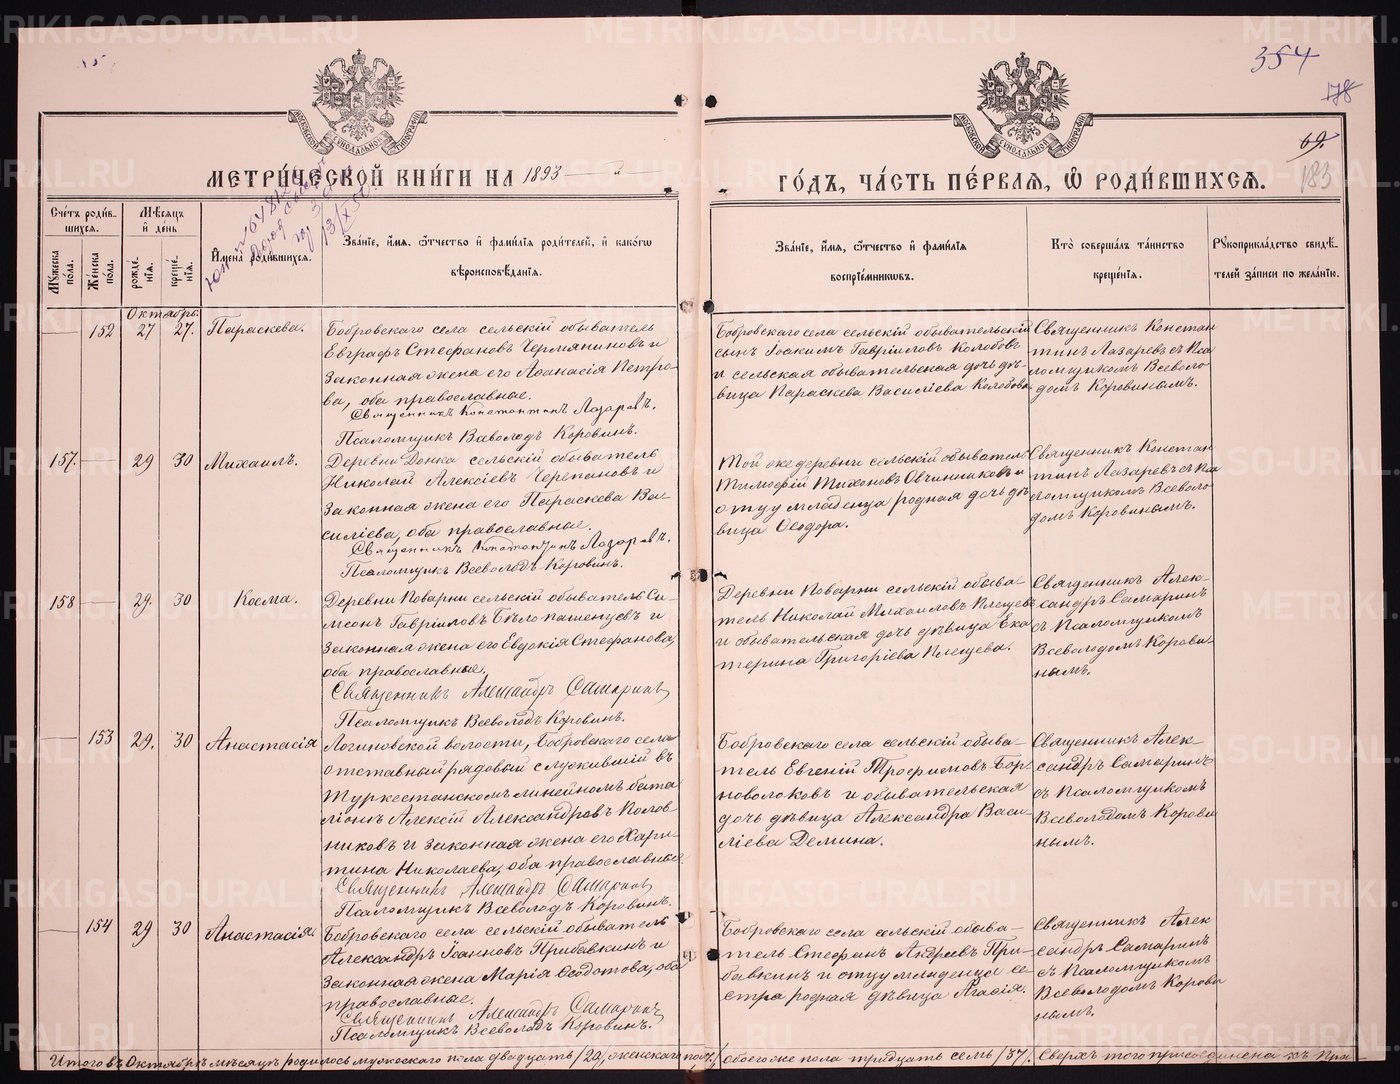 354
178
69.
183
МЕТРИ́ЧЕСКОЙ КНИ́ГИ НА 1893
ГО́ДЪ, ЧА́СТЬ ПЕ́РВАЯ, Ѡ РОДИ́ВШИХСЯ.
Сче́тъ роди́вшихся.
Му́жеска пола.
Же́нска пола.
Мѣсяцъ и де́нь
рожде́нія.
креще́нія.
Имена роди́вшихся.
Зва́ніе, и́мя, ѻтчество и фами́лія роди́телей, и како́гѡ
вѣроисповѣ́данія.
Зва́ніе, и́мя, ѻтчество и фами́лія
воспріе́мниковъ.
Кто̀ соверша́лъ та́инство
креще́нія.
Рукоприкла́дство свидѣ-
телей за́писи по жела́нію.
Октябрь.
152 27 27. Параскева.
Бобровскаго села сельскій обыватель
Евграфъ Стефановъ Чермяниновъ и
законная жена его Аѳанасія Петро-
ва, оба православные.
Священникъ Константинъ Лазаревъ.
Псаломщикъ Всеволодъ Коровинъ.
Бобровскаго села сельскій обывательскій
сынъ Іоакимъ Гавріиловъ Колобовъ
и сельская обывательская дочь дѣ-
вица Параскева Василіева Колобова
Священникъ Констан
тинъ Лазаревъ съ Пса
ломщикомъ Всеволо
домъ Коровинымъ.
157. 29 30 Михаилъ.
Деревни Донка сельскій обыватель
Николай Алексіевъ Черепановъ и
законная жена его Параскева Ва-
силіева, оба православные.
Священникъ Константинъ Лазаревъ.
Псаломщикъ Всеволодъ Коровинъ.
Той же деревни сельскій обыватель
Тимофій Тихоновъ Овчинниковъ и
отцу младенца родная дочь дѣ
вица Ѳеодора.
Священникъ Констан
тинъ Лазаревъ съ Пса
ломщикомъ Всеволо
домъ Коровинымъ.
158 29. 30 Косма.
Деревни Поварни сельскій обыватель Си-
меонъ Гавріиловъ Бѣлопашенцевъ и
законная жена его Евдокія Стефанова,
оба православные.
Священникъ Александръ Самаринъ
Псаломщикъ Всеволодъ Коровинъ.
Деревни Поварни сельскій обыва-
тель Николай Михаиловъ Плещевъ
и обывательская дочь дѣвица Ека
терина Григоріева Плещева.
Священникъ Алек-
сандръ Самаринъ
съ Псаломщикомъ
Всеволодомъ Корови-
нымъ.
153 29. 30 Анастасія
Логиновской волости, Бобровскаго села
отставный рядовый служившій въ
Туркестанскомъ линейномъ бата
ліонѣ Алексій Александровъ Полов
никовъ и законная жена его Хари-
тина Николаева, оба православные
Священникъ Александръ Самаринъ
Псаломщикъ Всеволодъ Коровинъ.
Бобровскаго села сельскій обыва-
тель Евгеній Трофимовъ Бор-
новолоковъ и обывательская
дочь дѣвица Александра Васи-
ліева Демина.
Священникъ Алек-
сандръ Самаринъ
съ Псаломщикомъ
Всеволодомъ Корови
нымъ.
154 29 30 Анастасія.
Бобровскаго села сельскій обыватель
Александръ Іоанновъ Прибавкинъ и
законная жена Марія Ѳеодотова, оба
православные.
Священникъ Александръ Самаринъ
Псаломщикъ Всеволодъ Коровинъ.
Бобровскаго села сельскій обыва-
тель Стефанъ Андреевъ При-
бавкинъ и отцу младенца се
стра родная дѣвица Агафія.
Священникъ Алек
сандръ Самаринъ
съ Псаломщикомъ
Всеволодомъ Корови
нымъ.
Итого въ Октябрѣ мѣсяцѣ родилось мужескаго пола двадцать /20/, женскаго обоего же пола тридцать семь /37/. Сверхъ того присоединена къ Пра-
METRIKI.GASO-URAL.RU